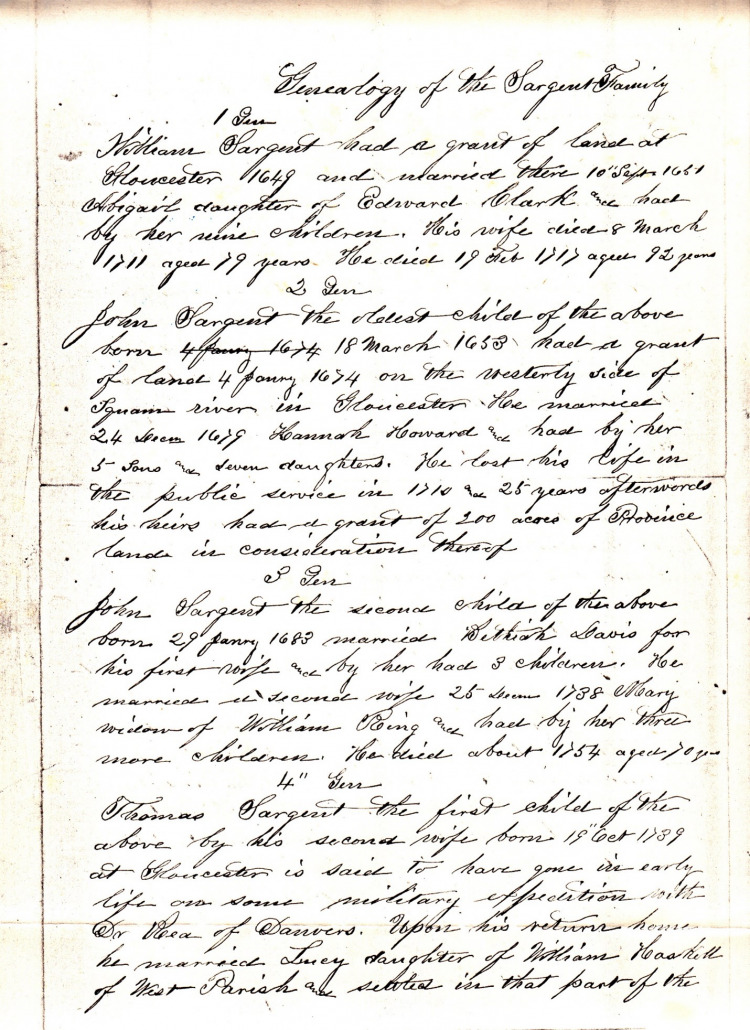 Genealogy of the Sargent Family
1 Gen
William Sargent had a grant of land at
Gloucester 1649 and married there 10" Sept 1651
Abigail daughter of Edward Clark and had
by her nine children. His wife died 8 March
1711 aged 79 years He died 19 Feb 1717 aged 92 years
2 Gen
John Sargent the oldest child of the above
born 4 Janry 1674 18 March 1653 had a grant
of land 4 Janry 1674 on the westerly side of
Squam river in Gloucester He married
24 Decm 1679 Hannah Howard and had by her
5 Sons and seven daughters. He lost his life in
the public service in 1710 and 25 years afterwords
his heirs had a grant of 200 acres of Province
land in consideration thereof
3 Gen
John Sargent the second child of the above
born 29 Janry 1683 married Bethiah Davis for
his first wife and by her had 3 children. He
married a second wife 25 Decm 1738 Mary
widow of William Ring and had by her three
more children. He died about 1754 aged 70 yrs
4" Gen
Thomas Sargent the first child of the
above by his second wife born 19" Oct 1739
at Gloucester is said to have gone in early
life on some military expedition with
Dr Rea of Danvers. Upon his return home
he married Lucy daughter of William Haskell
of West Parish and settled in that part of the